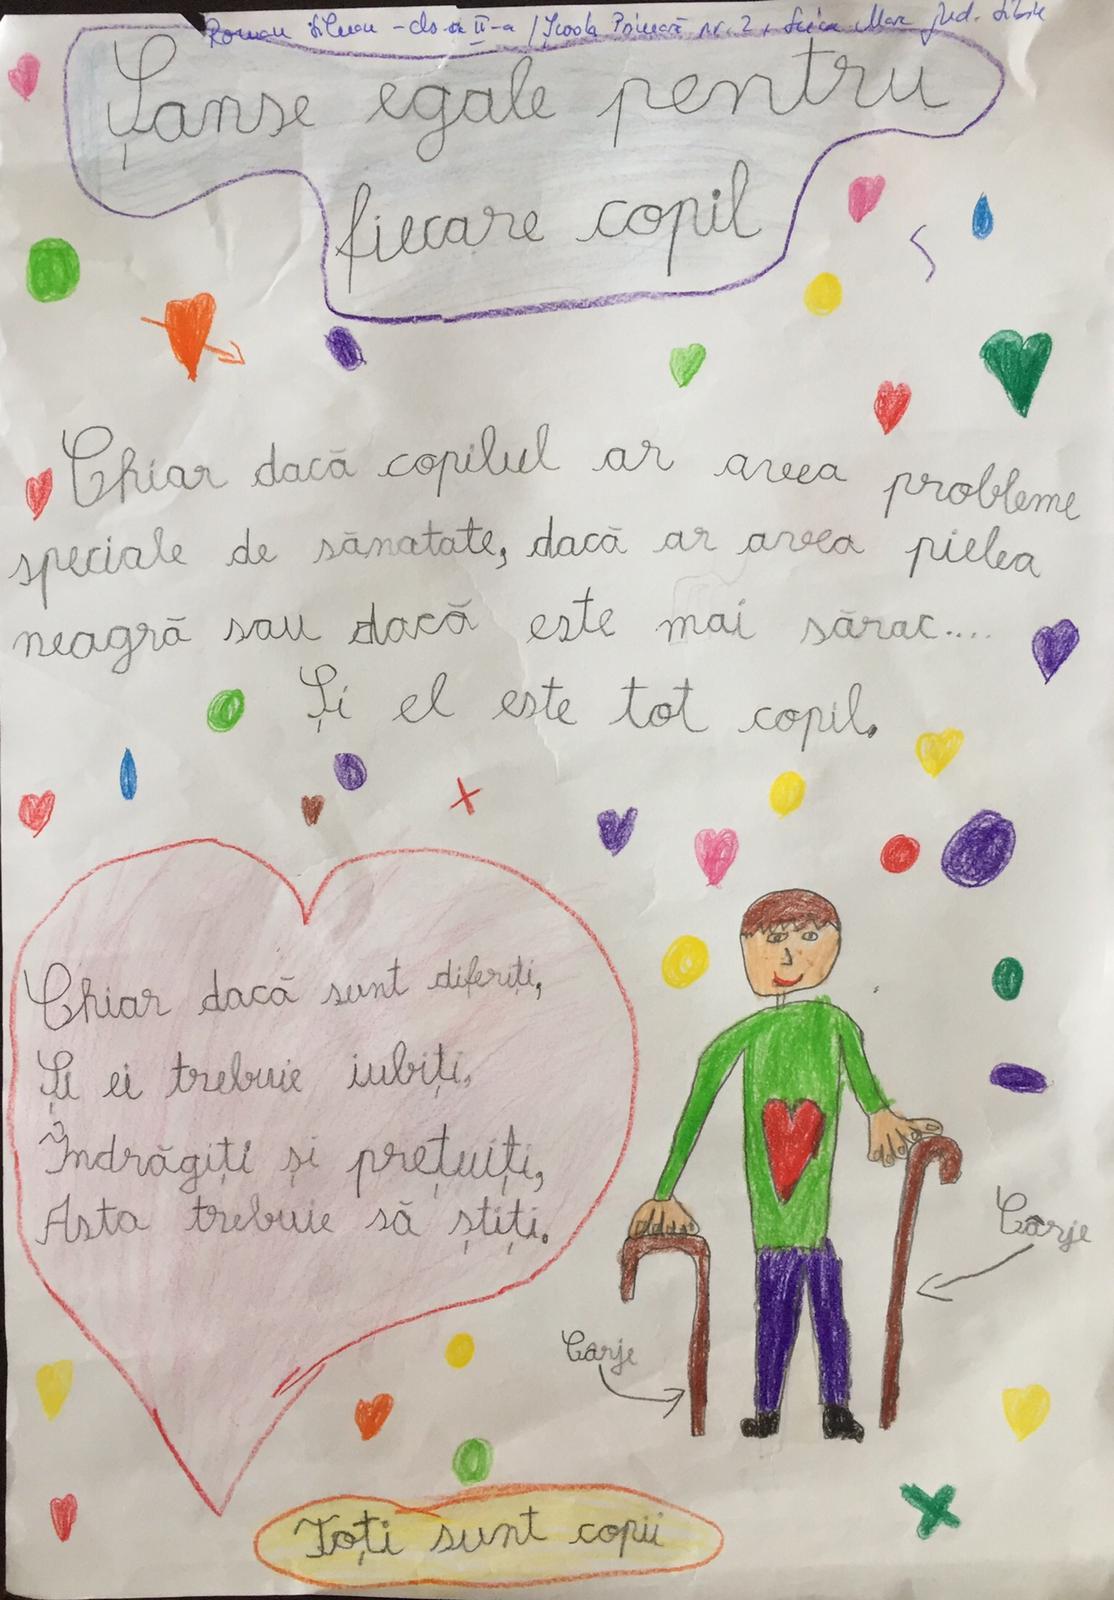 Roman - cls a II-a / Școala Primară nr. 2, Șeica Mare jud. Sibiu
Șanse egale pentru
fiecare copil
Chiar dacă copilul ar avea probleme
speciale de sănatate, dacă ar avea pielea
neagră sau dacă este mai sărac....
Și el este tot copil.
Chiar dacă sunt diferiți,
Și ei trebuie iubiți,
Îndrăgiți și prețuiți,
Asta trebuie să știți.
Cârje
Cârje
Toți sunt copii